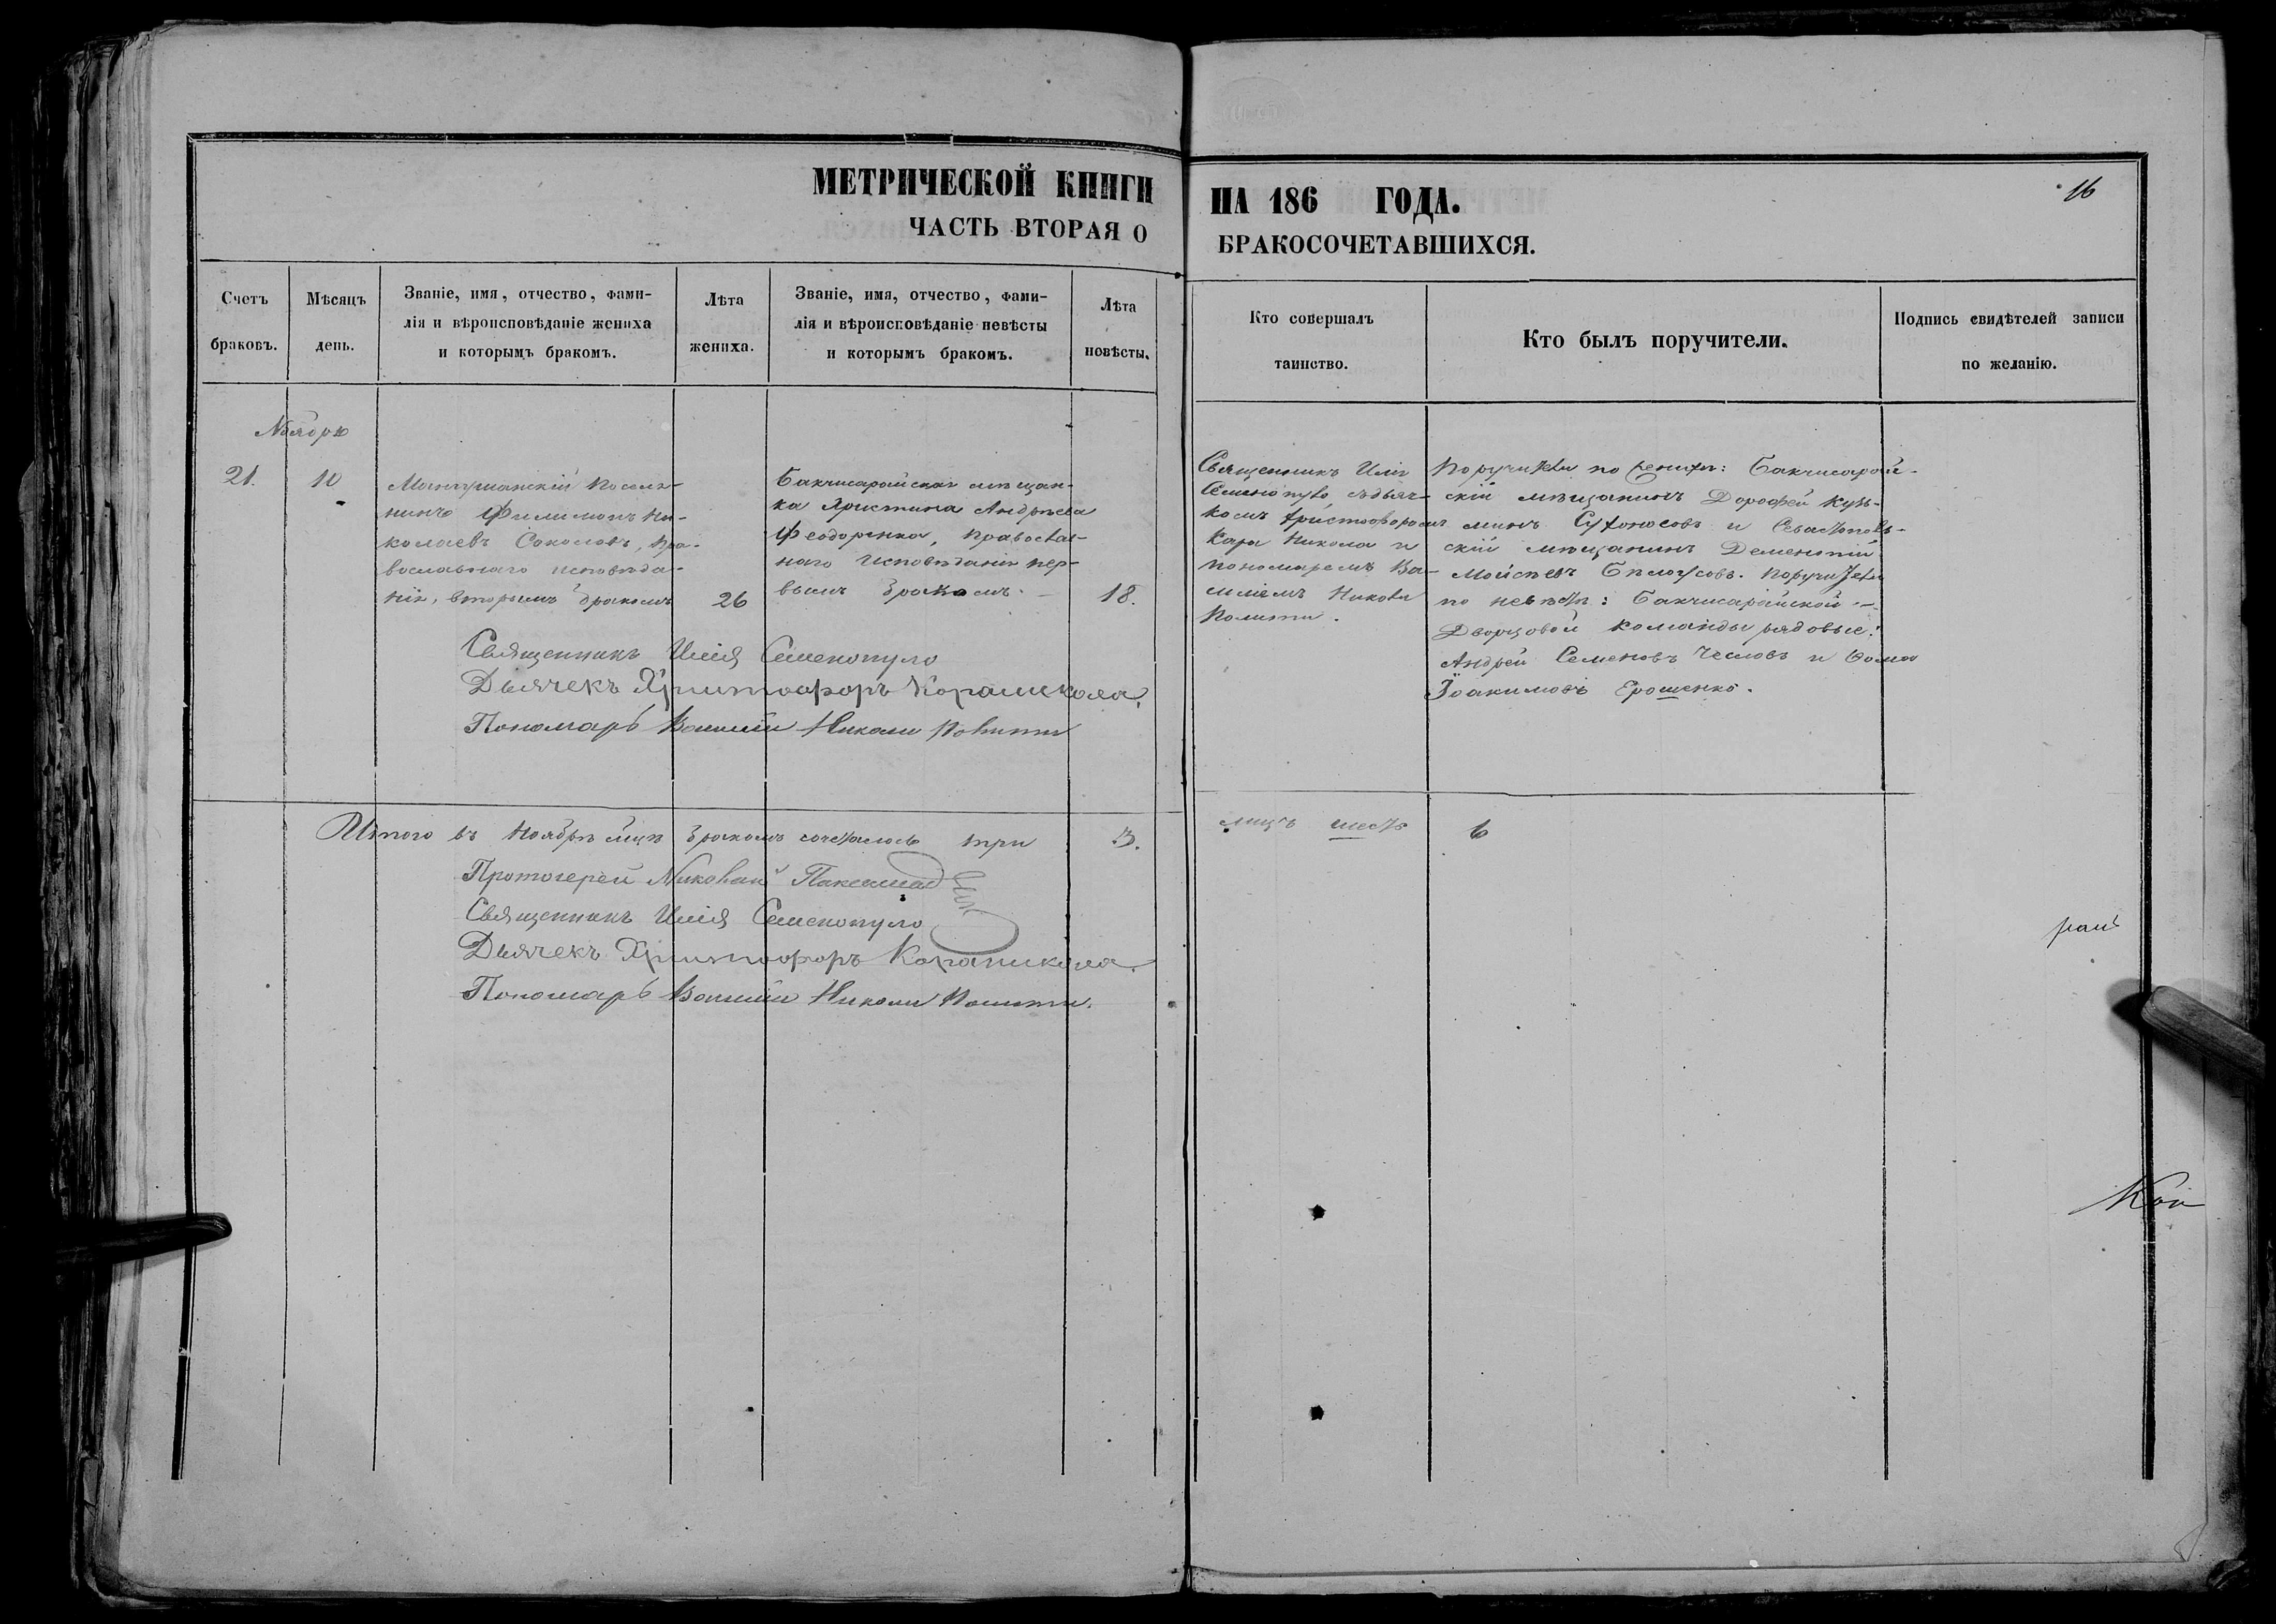 МЕТРИЧЕСКОЙ КНИГИ
ЧАСТЬ ВТОРАЯ О
НА 186 ГОДА.
БРАКОСОЧЕТАВШИХСЯ.
16
Счетъ
браковъ.
Мѣсяцъ
день.
Званіе, имя, отчество, фами-
лія и вѣроисповѣданіе жениха
и которымъ бракомъ.
Лѣта
жениха.
Званіе, имя, отчество, фами-
лія и вѣроисповѣданіе невѣсты
и которымъ бракомъ.
Лѣта
невѣсты.
Кто совершалъ
таинство.
Кто былъ поручители.
Подпись свидѣтелей записи
по желанію.
Ноября
21.
10
Мангушскій поселя-
нинъ Филимонъ Ни-
колаевъ Соколовъ, пра-
вославнаго исповѣда-
нія, вторымъ бракомъ
26
Бакчисарайская мѣщан-
ка Христина Андрѣева
Феодоренко, православ-
наго исповѣданія пер-
вымъ бракомъ.
18.
Священникъ Илія
Семенопуло, съ дьяч-
комъ Христофоромъ
Кара Никола и
пономаремъ Ва-
силіемъ Николи
Полити.
Поручители по женихѣ: Бакчисарай-
скій мѣщанинъ Дорофей Кузь-
минъ Сухоносовъ и Севастополь-
скій мѣщанинъ Дементій
Моисѣевъ Бѣлоусовъ. Поручители
по невѣстѣ: Бакчисарайской
Дворцовой команды рядовые:
Андрей Семеновъ Чесловъ и Ѳома
Іоакимовъ Ерошенко.
Священникъ Илія Семенопуло
Дьячекъ Христофоръ Караникола,
Пономарь Василій Николи Полити
Итого въ Ноябрѣ мцѣ бракомъ сочеталось три 3.
лицъ шесть 6
Протоіерей Николай Паксимад
Священникъ Илія Семенопуло
Дьячекъ Христофоръ Караникола.
Пономарь Василій Николи Полити.